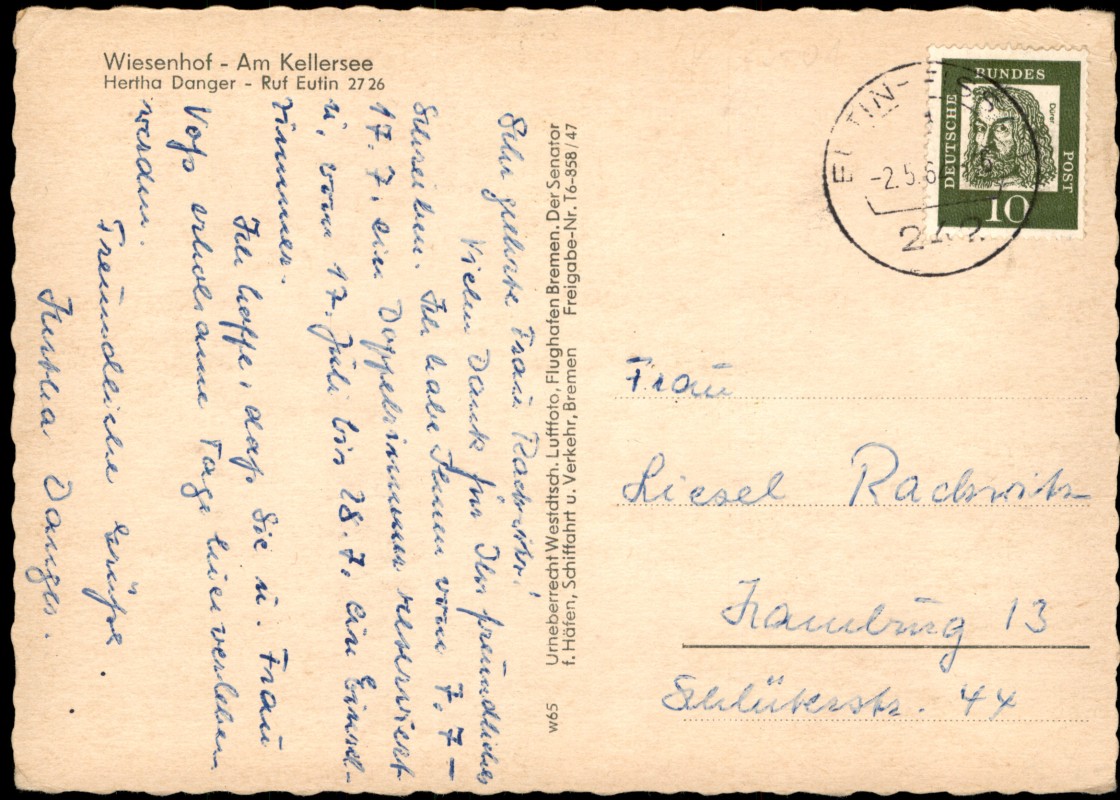 Wiesenhof - Am Kellersee
Hertha Danger - Ruf Eutin 2726
Sehr geehrte Frau Rackwitz!
Vielen Dank für Ihr freundliches
Schreiben. Ich habe Ihnen vom 7.7–
17.7. ein Doppelzimmer reserviert
u. vom 17. Juli bis 28.7. ein Einzel-
zimmer.
Ich hoffe, daß Sie u. Frau
Voß erholsame Tage hier verleben
werden.
Freundliche Grüße.
Hertha Danger.
Urneberrecht Westdtsch. Luftfoto, Flughafen Bremen. Der Senator
f. Häfen, Schiffahrt u. Verkehr, Bremen Freigabe-Nr. T6-858/47
w65
DEUTSCHE
BUNDES
POST
Dürer
10
EUTIN-
-2.5.6
Frau
Liesel Rackwitz
Hamburg 13
Schlüterstr. 44